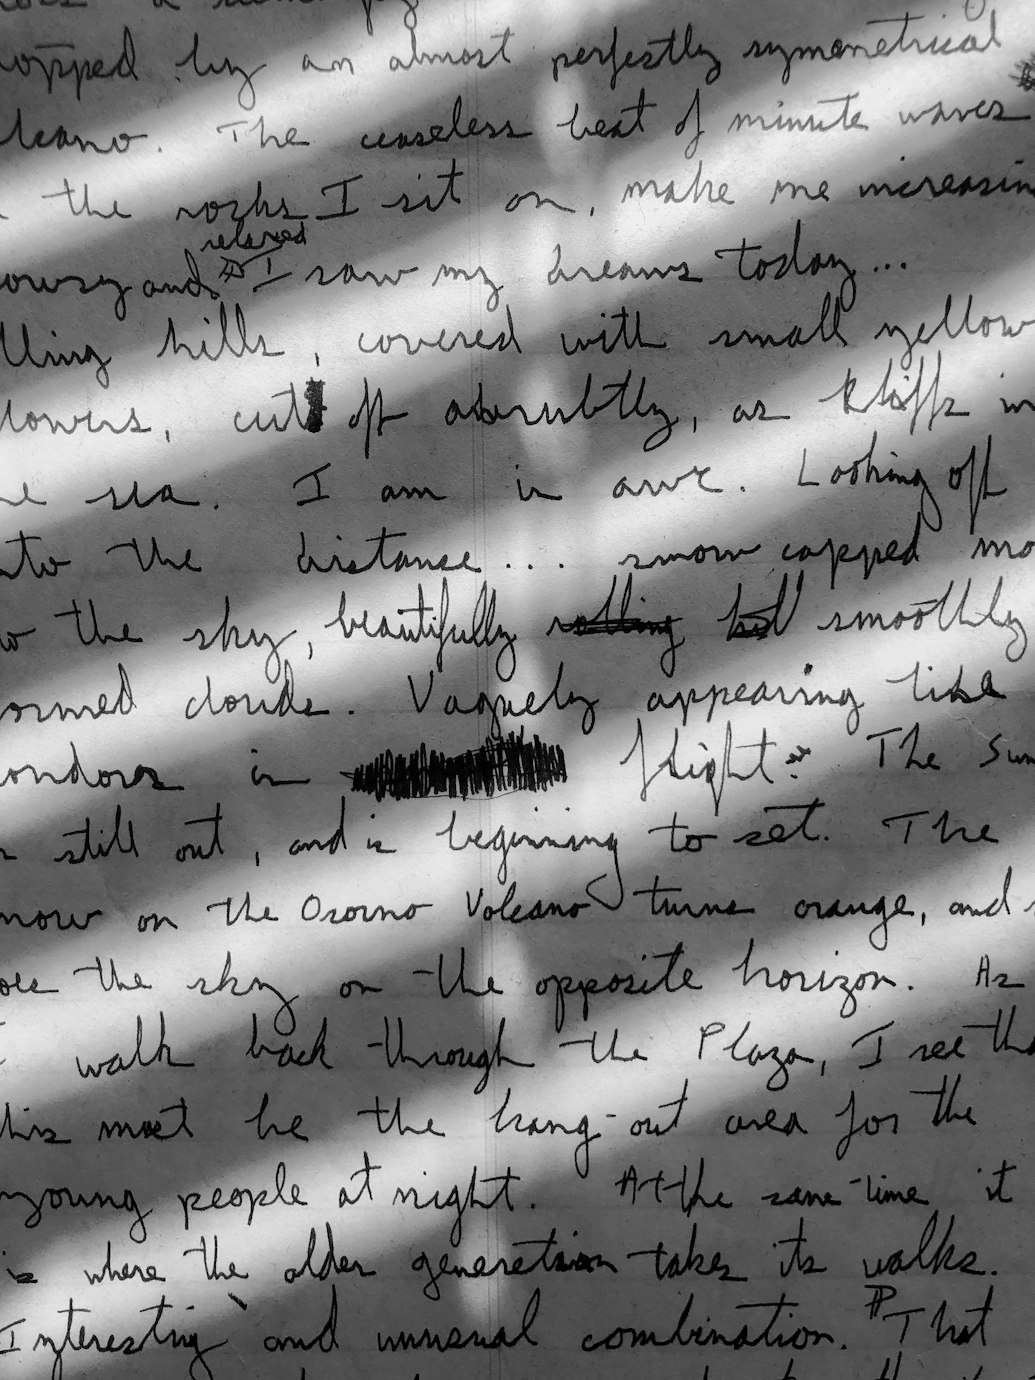 topped by an almost perfectly symmetrical
lcano. The ceaseless beat of minute waves
the rocks I sit on, make me increasin
relaxed
owsy and I saw my dreams today...
lling hills, covered with small yellow
lowers, cut off abrubtly, as kliffs in
he sea. I am in awe. Looking off
nto the distance.... snow capped mo
w the sky, beautifully rolling hill smoothly
ormed clouds. Vaguely appearing like
ondors in flight. The Sun
still out, and is beginning to set. The
now on the Osorno Volcano turns orange, and
oes the sky on the opposite horizon. As
I walk back through the Plaza, I see tha
this must be the hang-out area for the
young people at night. At the same time it
is where the older generation takes its walks.
Interesting and unusual combination. That